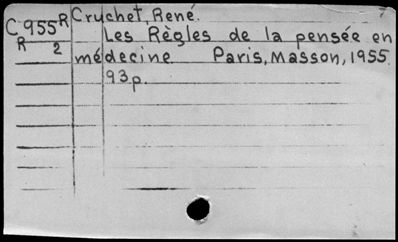 C 955 R Cruchet, René.
R 2 Les Règles de la pensée en
médecine Paris, Masson, 1955.
93p.